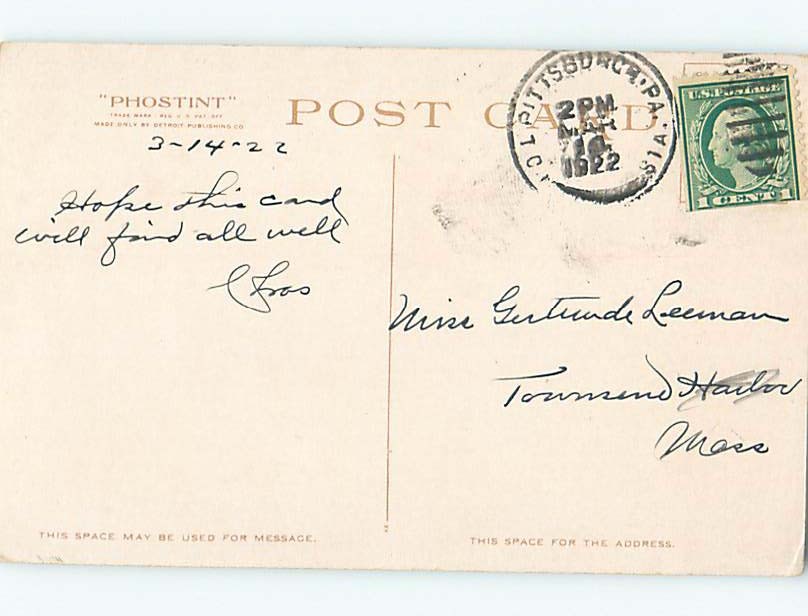 "PHOSTINT"
TRADE MARK REG U.S. PAT. OFF
MADE ONLY BY DETROIT PUBLISHING CO
POST CARD
3-14-22
Hope this card
will find all well
PITTSBURGH, PA.
2 PM
MAR
14
1922
STA
U.S. POSTAGE
1 CENT 1
Miss Gertrude Leeman
Townsend Harbor
Mass
THIS SPACE MAY BE USED FOR MESSAGE.
THIS SPACE FOR THE ADDRESS.